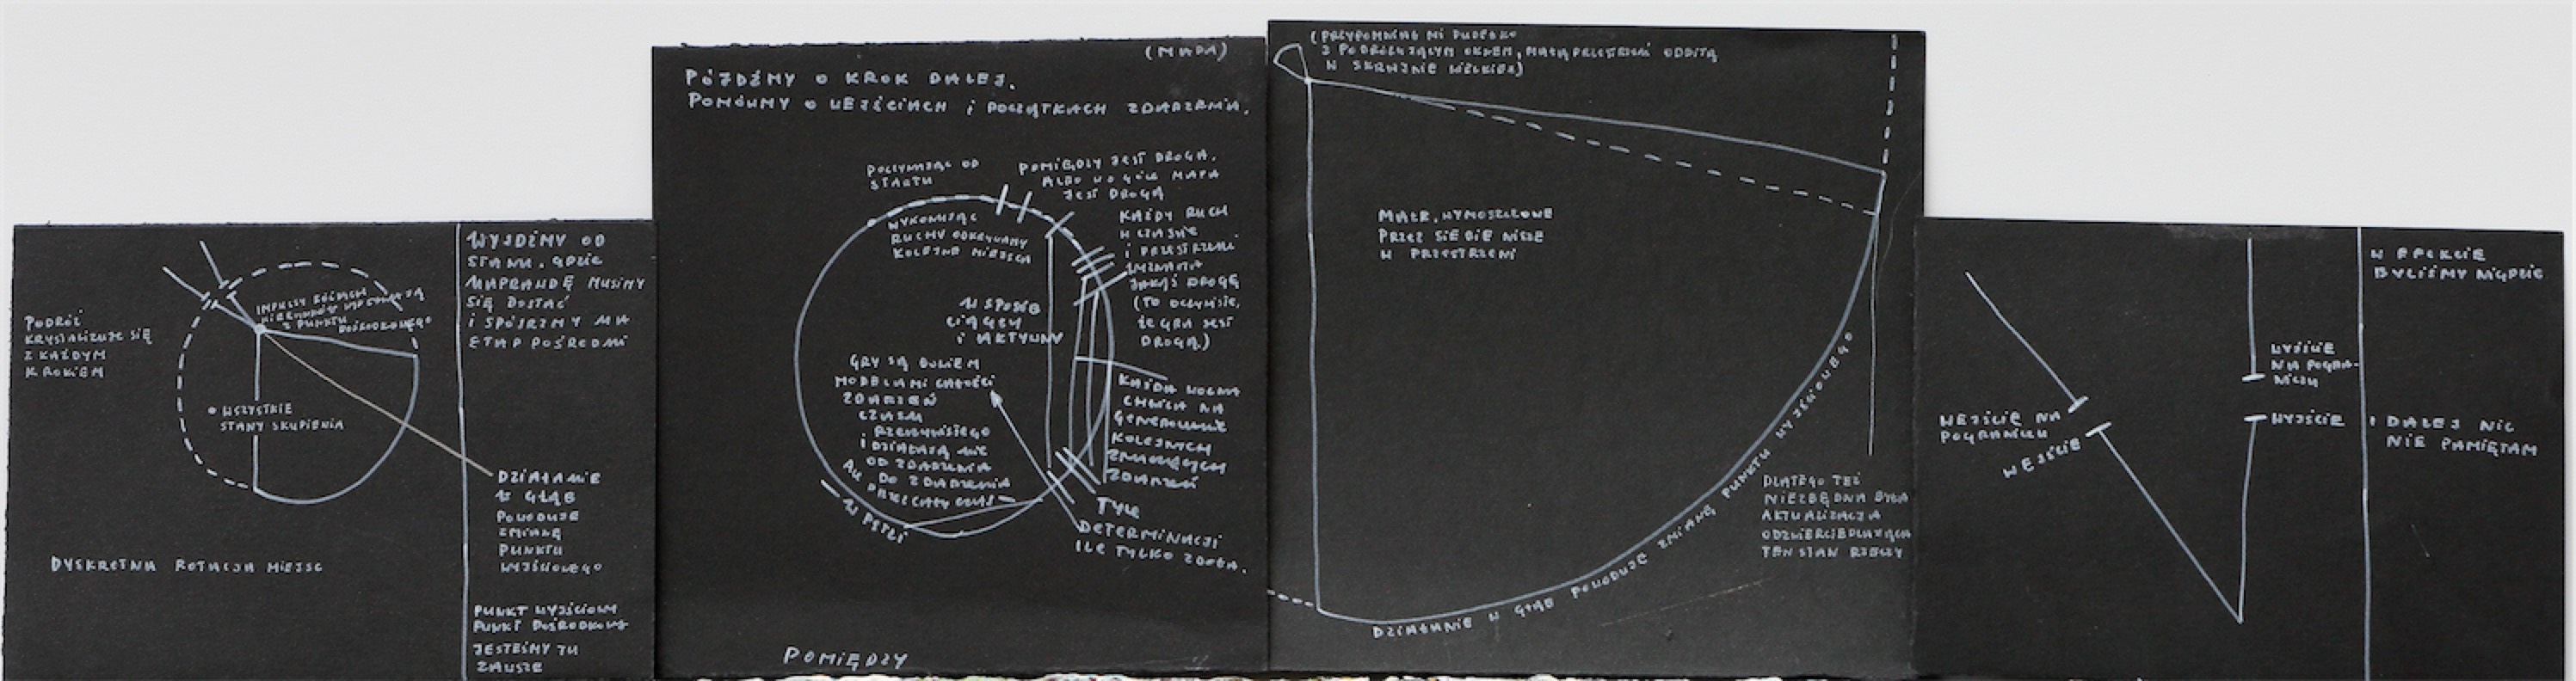 PODRÓŻ
KRYSTALIZUJE SIĘ
Z KAŻDYM
KROKIEM
IMPULSY RÓŻNYCH
KIERUNKÓW
Z PUNKTU
POŚRODKOWEGO
WSZYSTKIE
STANY SKUPIENIA
DYSKRETNA ROTACJA MIEJSC
WYJDŹMY OD
STANU, GDZIE
NAPRAWDĘ MUSIMY
SIĘ DOSTAĆ
I SPÓJRZMY NA
ETAP POŚREDNI
DZIAŁANIE
W GŁĄB
POWODUJE
ZMIANĘ
PUNKTU
WYJŚCIOWEGO
PUNKT WYJŚCIOWY
PUNKT POŚRODKOWY
JESTEŚMY TU
ZAWSZE
(MAPA)
PÓJDŹMY O KROK DALEJ.
POMÓWMY O WEJŚCIACH I POCZĄTKACH ZDARZENIA.
POCZYNAJĄC OD
STARTU
POMIĘDZY JEST DROGA,
ALBO W OGÓLE MAPA
JEST DROGĄ
WYKONUJĄC
RUCHY ODKRYWAMY
KOLEJNE MIEJSCA
KAŻDY RUCH
W CZASIE
I PRZESTRZENI
WYZNACZA
JAKĄŚ DROGĘ
(TO OCZYWISTE,
ŻE GRA JEST
DROGĄ)
W SPOSÓB
CIĄGŁY
I AKTYWNY
GRY SĄ BOWIEM
MODELAMI CAŁOŚCI
ZDARZEŃ
CZASU
RZECZYWISTEGO
I DZIAŁAJĄ NIE
OD ZDARZENIA
DO ZDARZENIA
ALE PRZEZ CAŁY CZAS
W PĘTLI
KAŻDA WOLNA
CHWILA NA
GENEROWANIE
KOLEJNYCH
ZNACZĄCYCH
ZDARZEŃ
TYLE
DETERMINACJI
ILE TYLKO ZDOŁA.
POMIĘDZY
(PRZYPOMINA MI PUDEŁKO
Z PODRÓŻUJĄCYM OKNEM, MAŁĄ PRZESTRZEŃ ODBITĄ
W SKRAJNIE WIELKIEJ)
MAŁE, WYMOSZCZONE
PRZEZ SIEBIE NISZE
W PRZESTRZENI
DZIAŁANIE W GŁĄB POWODUJE ZMIANĘ PUNKTU WYJŚCIOWEGO
DLATEGO TEŻ
NIEZBĘDNA BYŁA
AKTUALIZACJA
ODZWIERCIEDLAJĄCA
TEN STAN RZECZY
WEJŚCIE NA
POGRANICZU
WEJŚCIE
WYJŚCIE
NA POGRA-
NICZU
WYJŚCIE
W EFEKCIE
BYLIŚMY NIGDZIE
I DALEJ NIC
NIE PAMIĘTAM